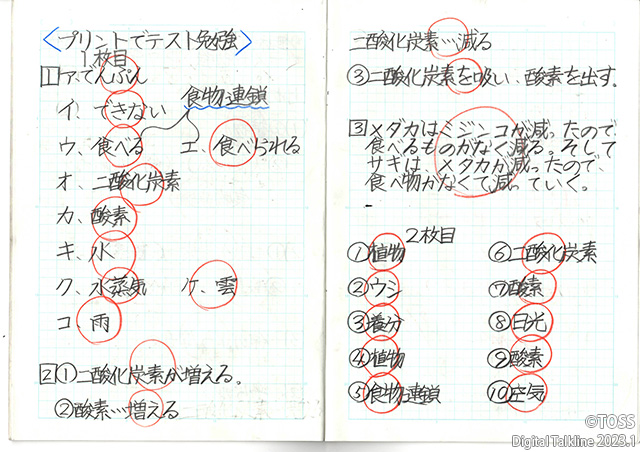 〈プリントでテスト勉強〉
1枚目
1 ア.でんぷん
イ、できない
食物連鎖
ウ、食べる エ、食べられる
オ、二酸化炭素
カ、酸素
キ、水
ク、水蒸気 ケ、雲
コ、雨
2 ①二酸化炭素が増える。
②酸素…増える
二酸化炭素…減る
③二酸化炭素を吸い、酸素を出す。
3 メダカはミジンコが減ったので、
食べるものがなく減る。そして
サギは、メダカが減ったので、
食べ物がなくて減っていく。
2枚目
①植物 ⑥二酸化炭素
②ウシ ⑦酸素
③養分 ⑧日光
④植物 ⑨酸素
⑤食物連鎖 ⑩空気
©TOSS
Digital Talkline 2023.1